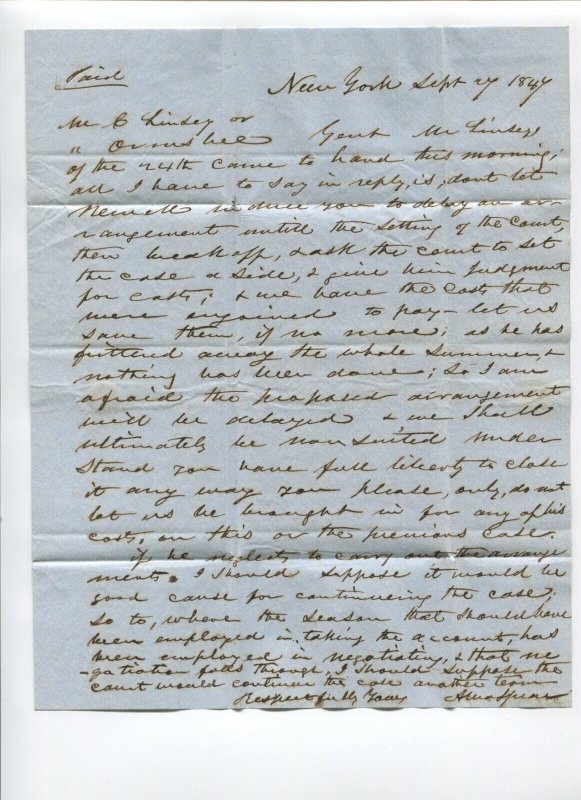 Paid
New York Sept 27 1847
Mr C Linsey or
" Ormsbee Gent Mr Linseys
of the 24th came to hand this morning;
all I have to say in reply, is, dont let
Newell induce you to delay an ar-
rangement untill the setting of the Court,
then break off, & ask the court to set
the case a side, & give him judgment
for costs; & we have the costs that
were enjoined to pay - let us
save them, if no more; as he has
frittered away the whole summer, &
nothing has been done; So I am
afraid the proposed arrangement
will be delayed & we Shall
ultimately be non Suited under
Stand you have full liberty to close
it any way you please, only, do not
let us be brought in for any of his
costs, on this or the previous case.
if he neglects to carry out the arrange
ments. I Should Suppose it would be
good cause for continueing the case;
So to, where the season that should have
been employed in taking the account, has
been employed in negotiating, & that ne
-gatiation falls through, I should suppose the
court would continue the case another term
Respectfully Yours